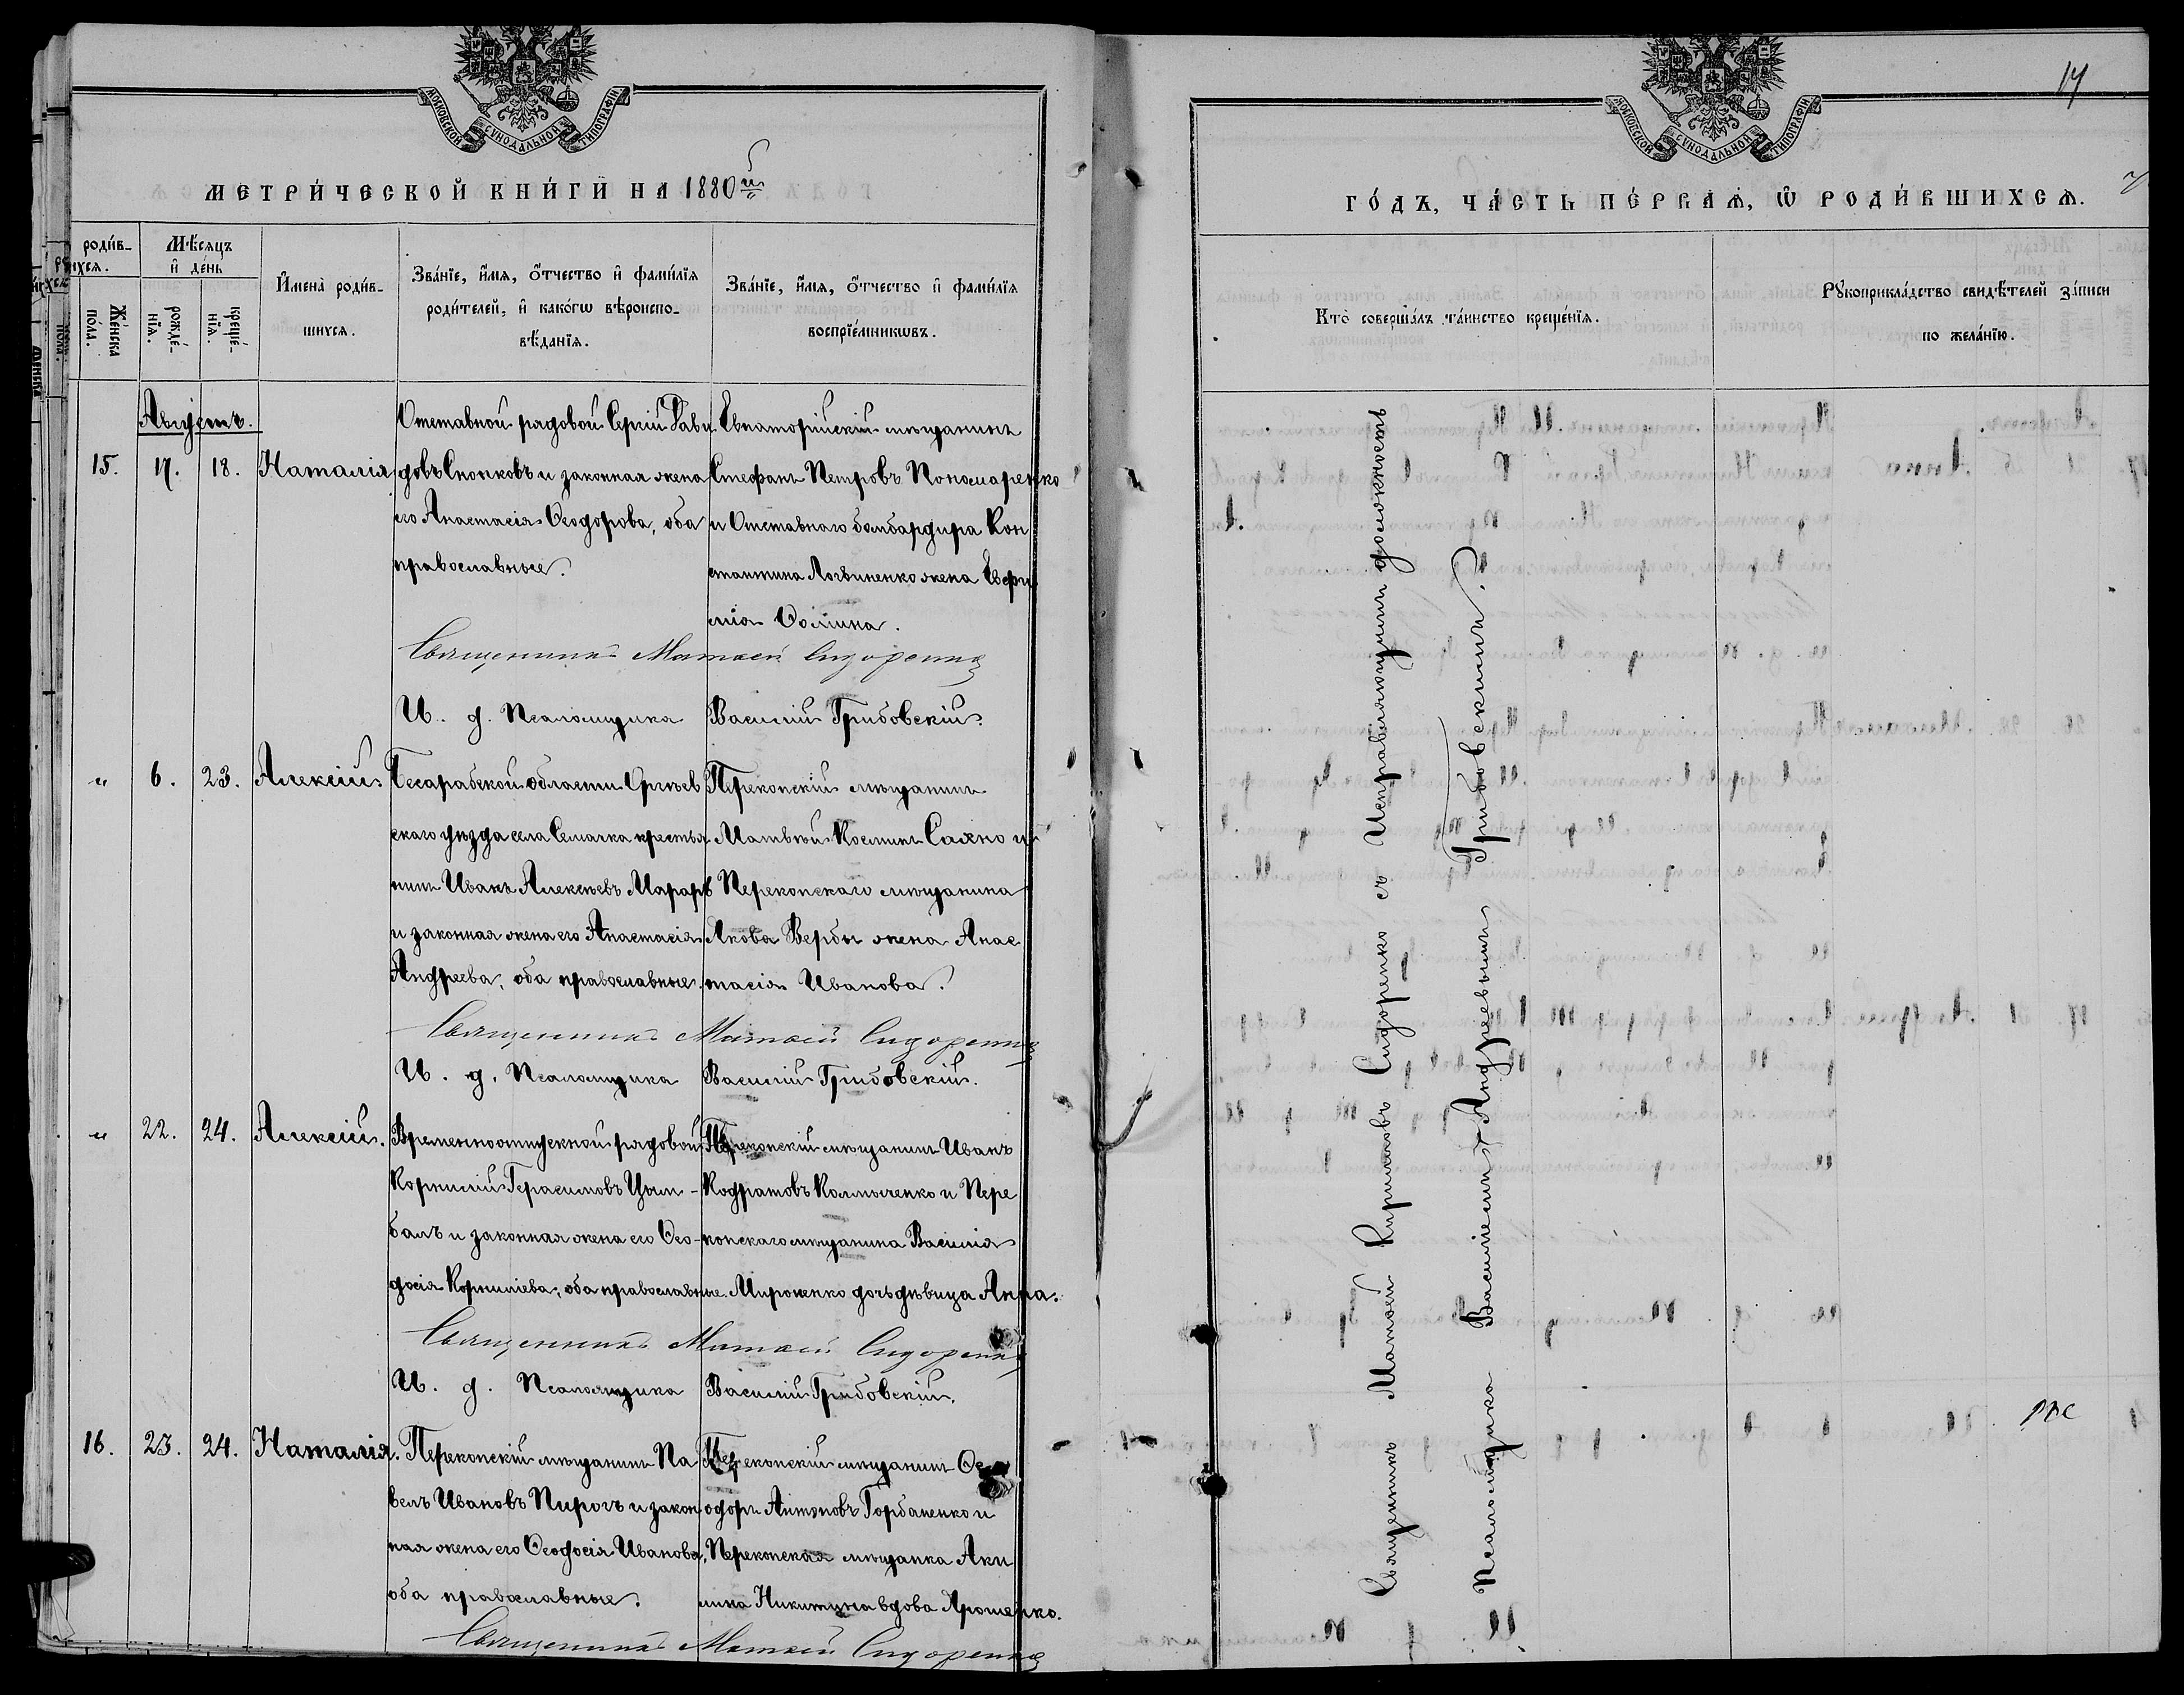 МОСКОВСКОЙ СѴНОДАЛЬНОЙ ТИПОГРАФІИ
МЕТРИ́ЧЕСКОЙ КНИ́ГИ НА 1880й
роди́в-
шихся.
Же́нска по́ла.
Мѣ́сяцъ и де́нь
рожде́-нїя.
креще́-нїя.
И҆мена̀ роди́в-
шихся.
Зва́нїе, и҆́мя, ѻ҆́тчество и҆ фами́лїя
роди́телей, и҆ како́гѡ вѣроиспо-
вѣ́данїя.
Зва́нїе, и҆́мя, ѻ҆́тчество и҆ фами́лїя
воспрїе́мникѡвъ.
Августъ.
15. 17. 18. Наталія
Отставной рядовой Сергій Дави
довъ Снопковъ и законная жена
его Анастасія Ѳеодорова, оба
православные.
Евпаторійскій мѣщанинъ
Стефанъ Петровъ Пономаренко
и Отставнаго бомбардира Кон
стантина Логвиненко жена Евфи
мія Ѳомина.
Священникъ Матѳей Сидоренко
И. д. Псаломщика Василій Грибовскій.
" 6. 23. Алексій.
Бесарабской области Оргѣев
скаго уѣзда села крестья
нинъ Иванъ Алексѣевъ Мараръ
и законная жена его Анастасія
Андреева, оба православные.
Перекопскій мѣщанинъ
Матвѣй Косминъ Сахно и
Перекопскаго мѣщанина
Якова Вербы жена Анас
тасія Иванова.
Священникъ Матѳей Сидоренко
И. д. Псаломщика Василій Грибовскій.
" 22. 24. Алексій.
Временноотпускной рядовой
Корнилій Герасимовъ Цым-
балъ и законная жена его Ѳео-
досія Корниліева, оба православные.
Перекопскій мѣщанинъ Иванъ
Кодратовъ Колмыченко и Пере
копскаго мѣщанина Василія
Мироненко дочь дѣвица Анна.
Священникъ Матѳей Сидоренко
И. д. Псаломщика Василій Грибовскій.
16. 23. 24. Наталія.
Перекопскій мѣщанинъ Па
велъ Ивановъ Пирогъ и закон
ная жена его Ѳеодосія Иванова,
оба православные.
Перекопскій мѣщанинъ Ѳе
одоръ Антоновъ Горбаненко и
Перекопская мѣщанка Аки
лина Никитина вдова Ярошенко.
Священникъ Матѳей Сидоренко
МОСКОВСКОЙ СѴНОДАЛЬНОЙ ТИПОГРАФІИ
ГО́ДЪ, ЧА́СТЬ ПЕ́РВАѦ, Ѽ РОДИ́ВШИХСѦ.
Кто̀ соверша́лъ та́инство креще́нїя.
Рꙋкоприкла́дство свидѣ́телей за́писи
по жела́нїю.
Священникъ Матѳей Кириловъ Сидоренко съ Исправляющимъ должность
Псаломщика Василіемъ Андреевымъ Грибовскимъ.